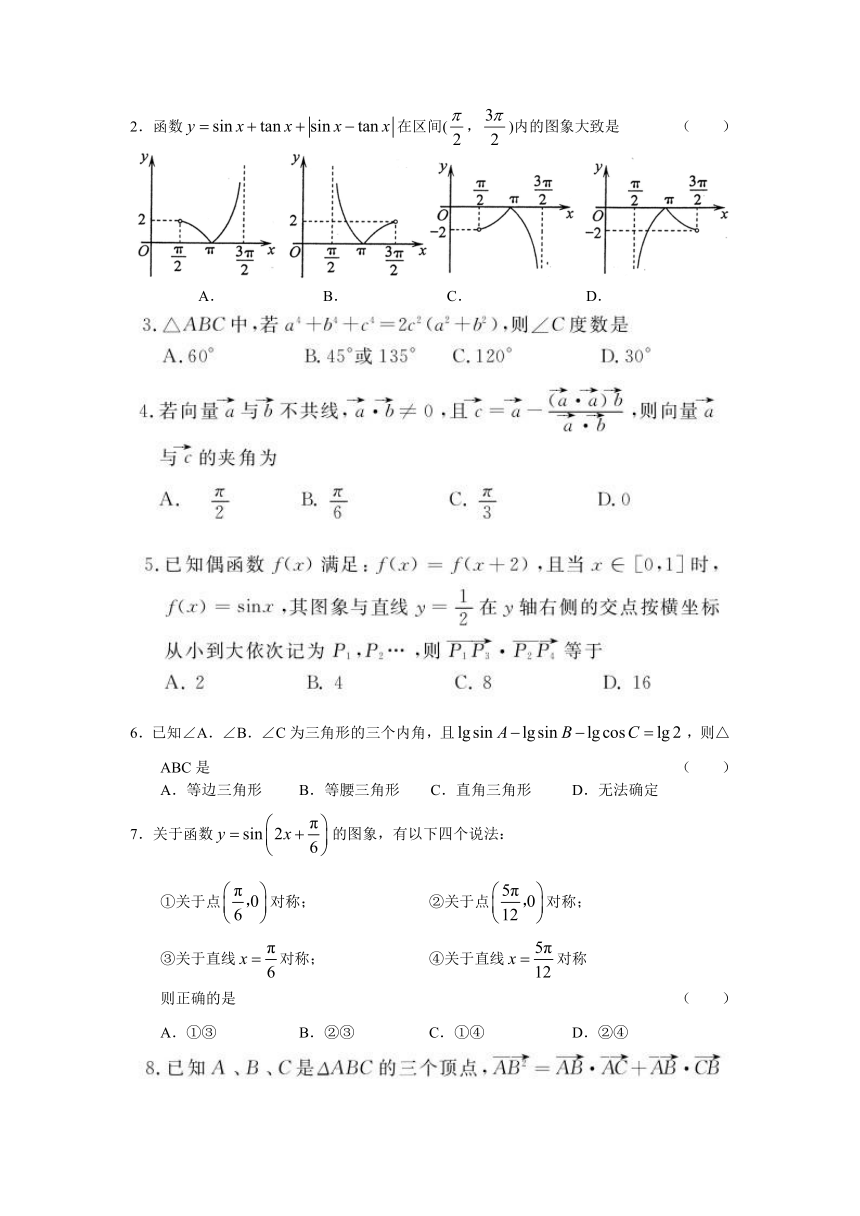 2．函数 y = sin x + tan x + |sin x − tan x| 在区间(π/2，3π/2)内的图象大致是 （ ）
y y y y
2 2 π/2 π 3π/2 π/2 π 3π/2
O π/2 π 3π/2 x O π/2 π 3π/2 x O −2 x O −2 x
A． B． C． D．
3.△ABC中,若 a⁴+b⁴+c⁴=2c²(a²+b²),则∠C度数是
A.60° B.45°或135° C.120° D.30°
4.若向量a→与b→不共线,a→·b→≠0,且c→=a→−(a→·a→)b→/a→·b→,则向量a→
与c→的夹角为
A. π/2 B. π/6 C. π/3 D.0
5.已知偶函数 f(x) 满足: f(x) = f(x+2),且当 x∈[0,1]时,
f(x) = sinx,其图象与直线 y=1/2 在 y 轴右侧的交点按横坐标
从小到大依次记为 P₁,P₂…,则 P₁P₃→·P₂P₄→ 等于
A. 2 B. 4 C. 8 D. 16
6．已知∠A．∠B．∠C为三角形的三个内角，且 lg sin A − lg sin B − lg cos C = lg 2，则△
ABC是 （ ）
A．等边三角形 B．等腰三角形 C．直角三角形 D．无法确定
7．关于函数 y = sin(2x + π/6) 的图象，有以下四个说法：
①关于点(π/6,0)对称； ②关于点(5π/12,0)对称；
③关于直线 x = π/6 对称； ④关于直线 x = 5π/12 对称
则正确的是 （ ）
A．①③ B．②③ C．①④ D．②④
8.已知 A、B、C是ΔABC的三个顶点,AB→²=AB→·AC→+AB→·CB→